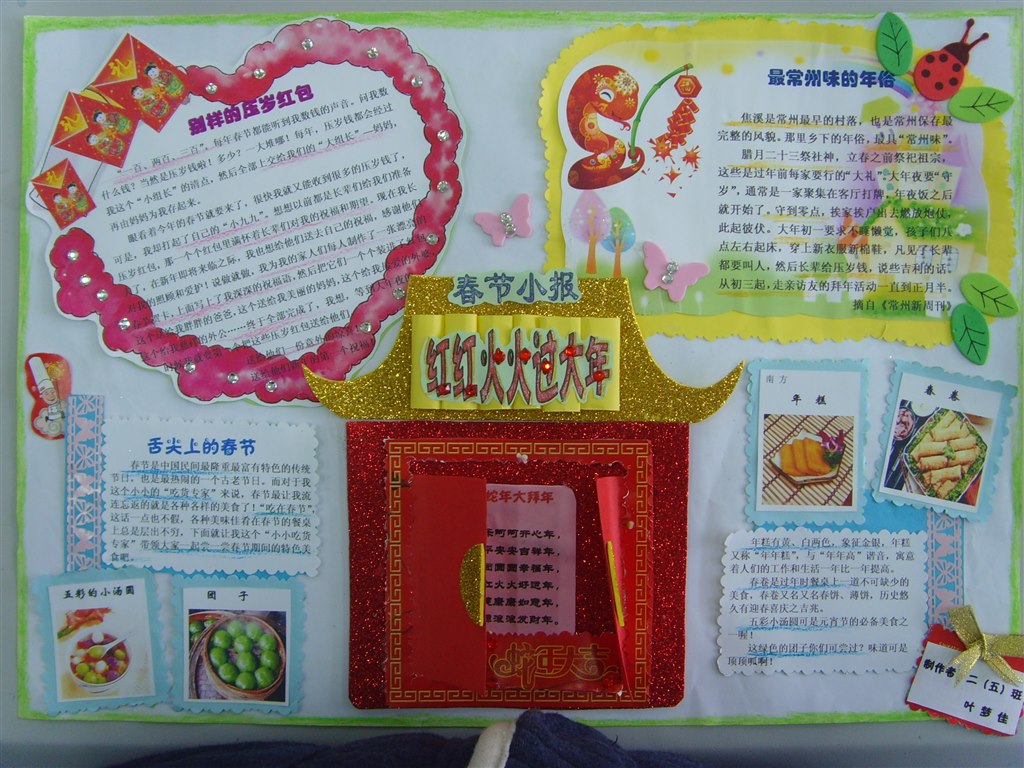 别样的压岁红包
“一百、两百、三百”，每年春节都能听到我数钱的声音。问我数
什么钱？当然是压岁钱啦！多少？一大堆哪！每年，压岁钱都会经过
我这个“小组长”的清点，然后全部上交给我们的“大组长”—妈妈，
再由妈妈为我存起来。
眼看着今年的春节就要来了，很快我就又能收到很多的压岁钱了，
我却打起了自己的“小九九”。想想以前都是长辈们给我们准备
压岁红包，那一个个红包里满怀着长辈们对我的祝福和期望。现在我长
了，在新年即将来临之际，我也想给他们送去自己的祝福，感谢他们
对我的照顾和爱护！说做就做，我为我的家人们每人制作了一张漂亮的
上面写上了我深深的祝福语，然后把它们一个个装进了
最常州味的年俗
焦溪是常州最早的村落，也是常州保存最
完整的风貌。那里乡下的年俗，最具“常州味”。
腊月二十三祭社神，立春之前祭祀祖宗，
这些是过年前每家要行的“大礼”。大年夜要“守
岁”，通常是一家聚集在客厅打牌，年夜饭之后
就开始了。守到零点，挨家挨户出去燃放炮仗，
此起彼伏。大年初一要求不睡懒觉，孩子们八
点左右起床，穿上新衣服新棉鞋，凡见了长辈
都要叫人，然后长辈给压岁钱，说些吉利的话。
从初三起，走亲访友的拜年活动一直到正月半。
摘自《常州新周刊》
春节小报
红红火火过大年
舌尖上的春节
春节是中国民间最隆重最富有特色的传统
节日，也是最热闹的一个古老节日。而对于我
这个小小的“吃货专家”来说，春节最让我流
连忘返的就是各种各样的美食了！“吃在春节”，
这话一点也不假，各种美味佳肴在春节的餐桌
上总是层出不穷，下面就让我这个“小小吃货
专家”带领大家一起尝一尝春节期间的特色美
食吧。
五彩的小汤圆
团 子
蛇年大拜年
开心年，
安安吉祥年，
圆圆幸福年，
火火好运年，
如意年，
滚滚发财年。
蛇年大吉
南方
年 糕
春 卷
年糕有黄、白两色，象征金银，年糕
又称“年年糕”，与“年年高”谐音，寓意
着人们的工作和生活一年比一年提高。
春卷是过年时餐桌上一道不可缺少的
美食，春卷又名又名春饼、薄饼，历史悠
久有迎春喜庆之吉兆。
五彩小汤圆可是元宵节的必备美食之
一喔！
这绿色的团子你们可尝过？味道可是
顶顶呱啊！
制作者
二（五）班
叶梦佳